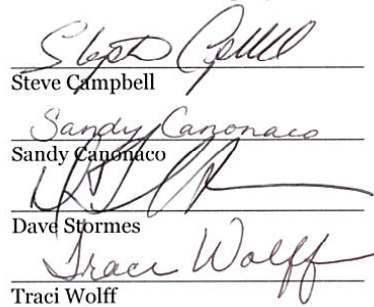 Steve Campbell
Sandy Canonaco
Sandy Canonaco
Dave Stormes
Traci Wolff
Traci Wolff